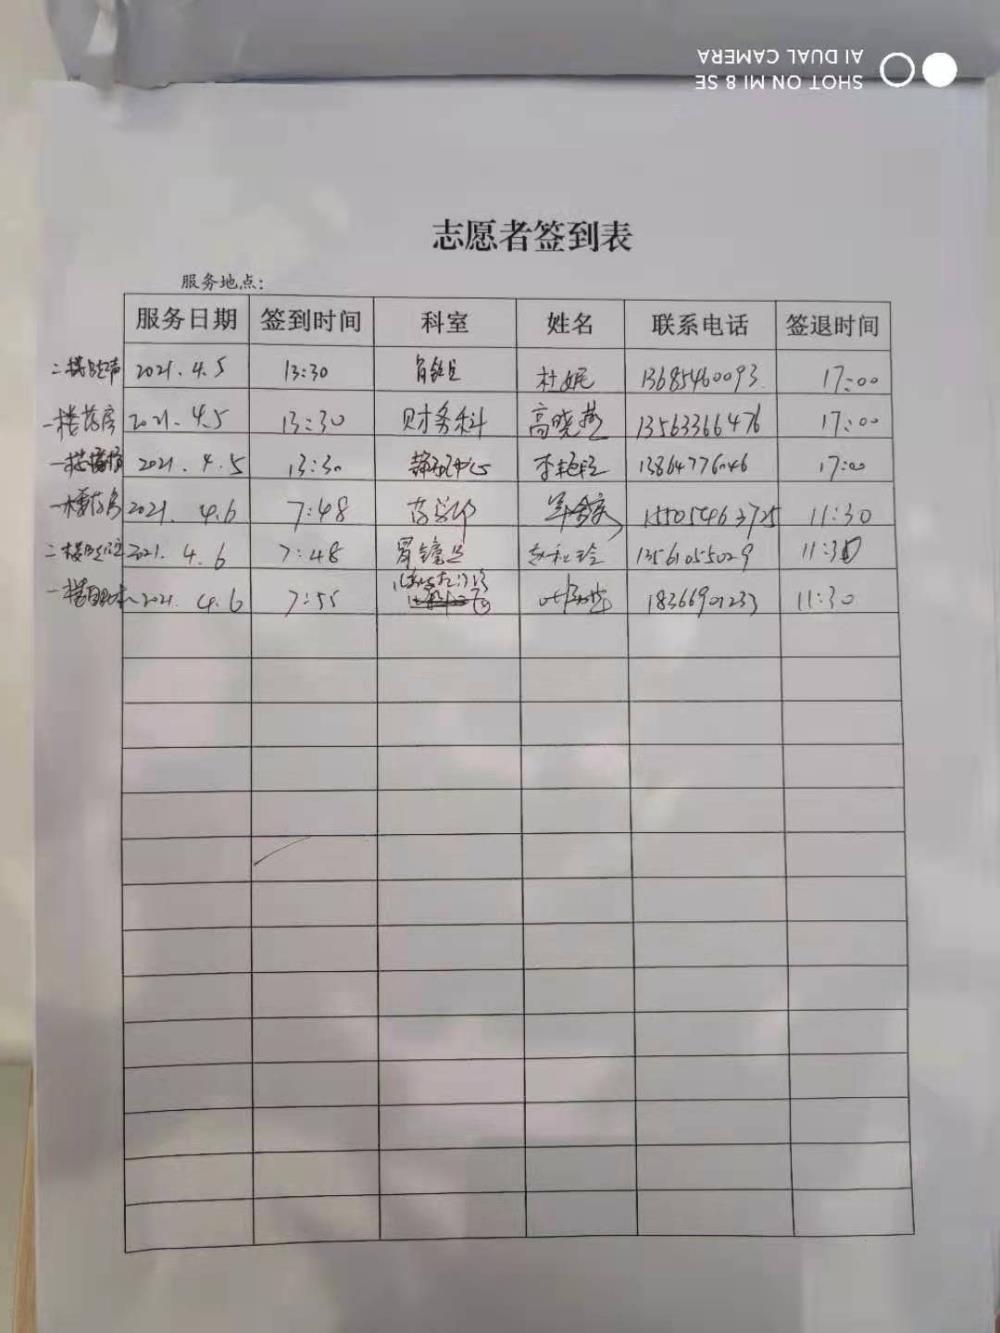 SHOT ON MI 8 SE
AI DUAL CAMERA
志愿者签到表
服务地点：
服务日期 签到时间 科室 姓名 联系电话 签退时间
2021.4.5 13:30 杜妮 13685460093 17:00
一楼药房 2021.4.5 13:30 财务科 高晓燕 13563366476 17:00
2021.4.5 13:30 中心 13864776046 17:00
一楼药房 2021.4.6 7:48 药学部 15505463725 11:30
二楼 2021.4.6 7:48 胃镜室 13561055029 11:30
一楼 2021.4.6 7:55 18366901233 11:30